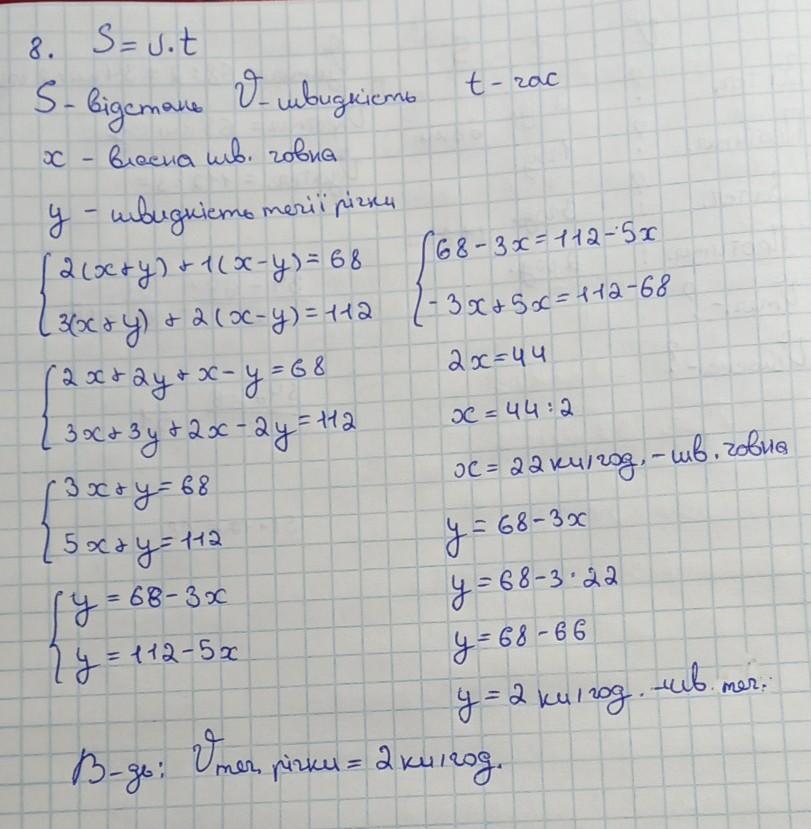 8. S = v·t
S - відстань V - швидкість t - час
x - власна шв. човна
y - швидкість течії річки
2(x+y) + 1(x-y) = 68
3(x+y) + 2(x-y) = 112
2x + 2y + x - y = 68
3x + 3y + 2x - 2y = 112
3x + y = 68
5x + y = 112
y = 68 - 3x
y = 112 - 5x
68 - 3x = 112 - 5x
-3x + 5x = 112 - 68
2x = 44
x = 44 : 2
x = 22 км/год. - шв. човна
y = 68 - 3x
y = 68 - 3 · 22
y = 68 - 66
y = 2 км/год. - шв. теч.
В-дь: V теч. річки = 2 км/год.